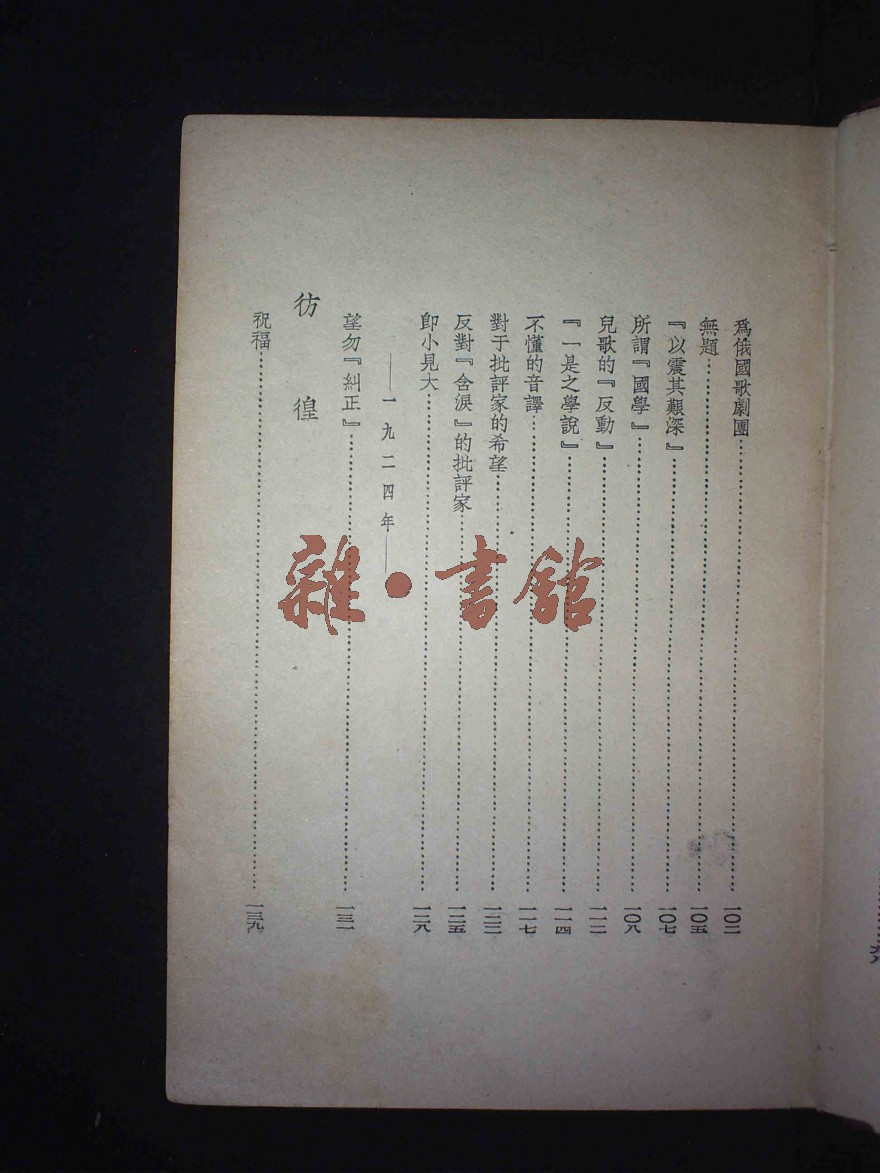 爲俄國歌劇團……一〇二
無題……一〇五
『以震其艱深』……一〇七
所謂『國學』……一〇八
兒歌的『反動』……一一二
『一是之學說』……一一四
不懂的音譯……一一七
對于批評家的希望……一二三
反對『含淚』的批評家……一二五
卽小見大……一二八
——一九二四年——
望勿『糾正』……一三一
彷徨
祝福……一三九
雜·書館